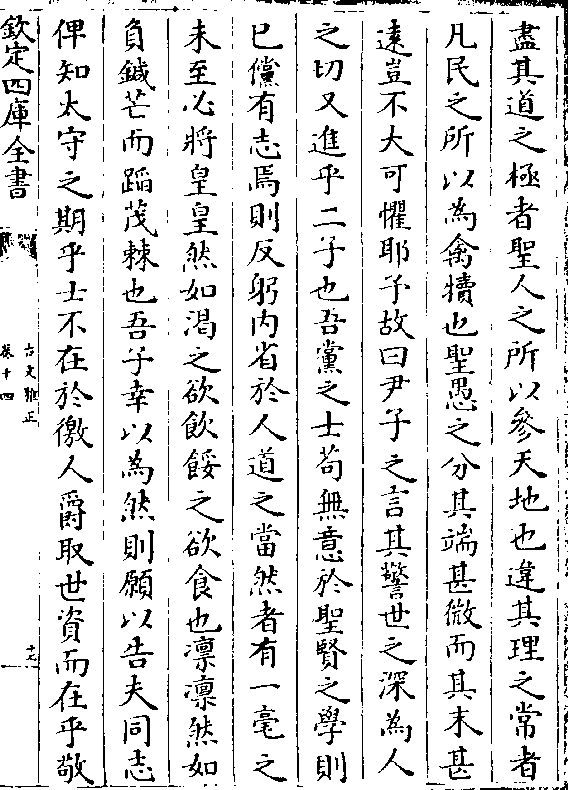 盡其道之極者聖人之所以參天地也違其理之常者
凡民之所以為禽犢也聖愚之分其端甚微而其末甚
遠豈不大可懼耶予故曰尹子之言其警世之深為人
之切又進乎二子也吾黨之士苟無意於聖賢之學則
已儻有志焉則反躬内省於人道之當然者有一毫之
未至必將皇皇然如渴之欲飲餒之欲食也凛凛然如
負鍼芒而蹈茂棘也吾子幸以為然則願以告夫同志
俾知太守之期乎士不在於徼人爵取世資而在乎敬
欽定四庫全書
古文雅正
卷十四